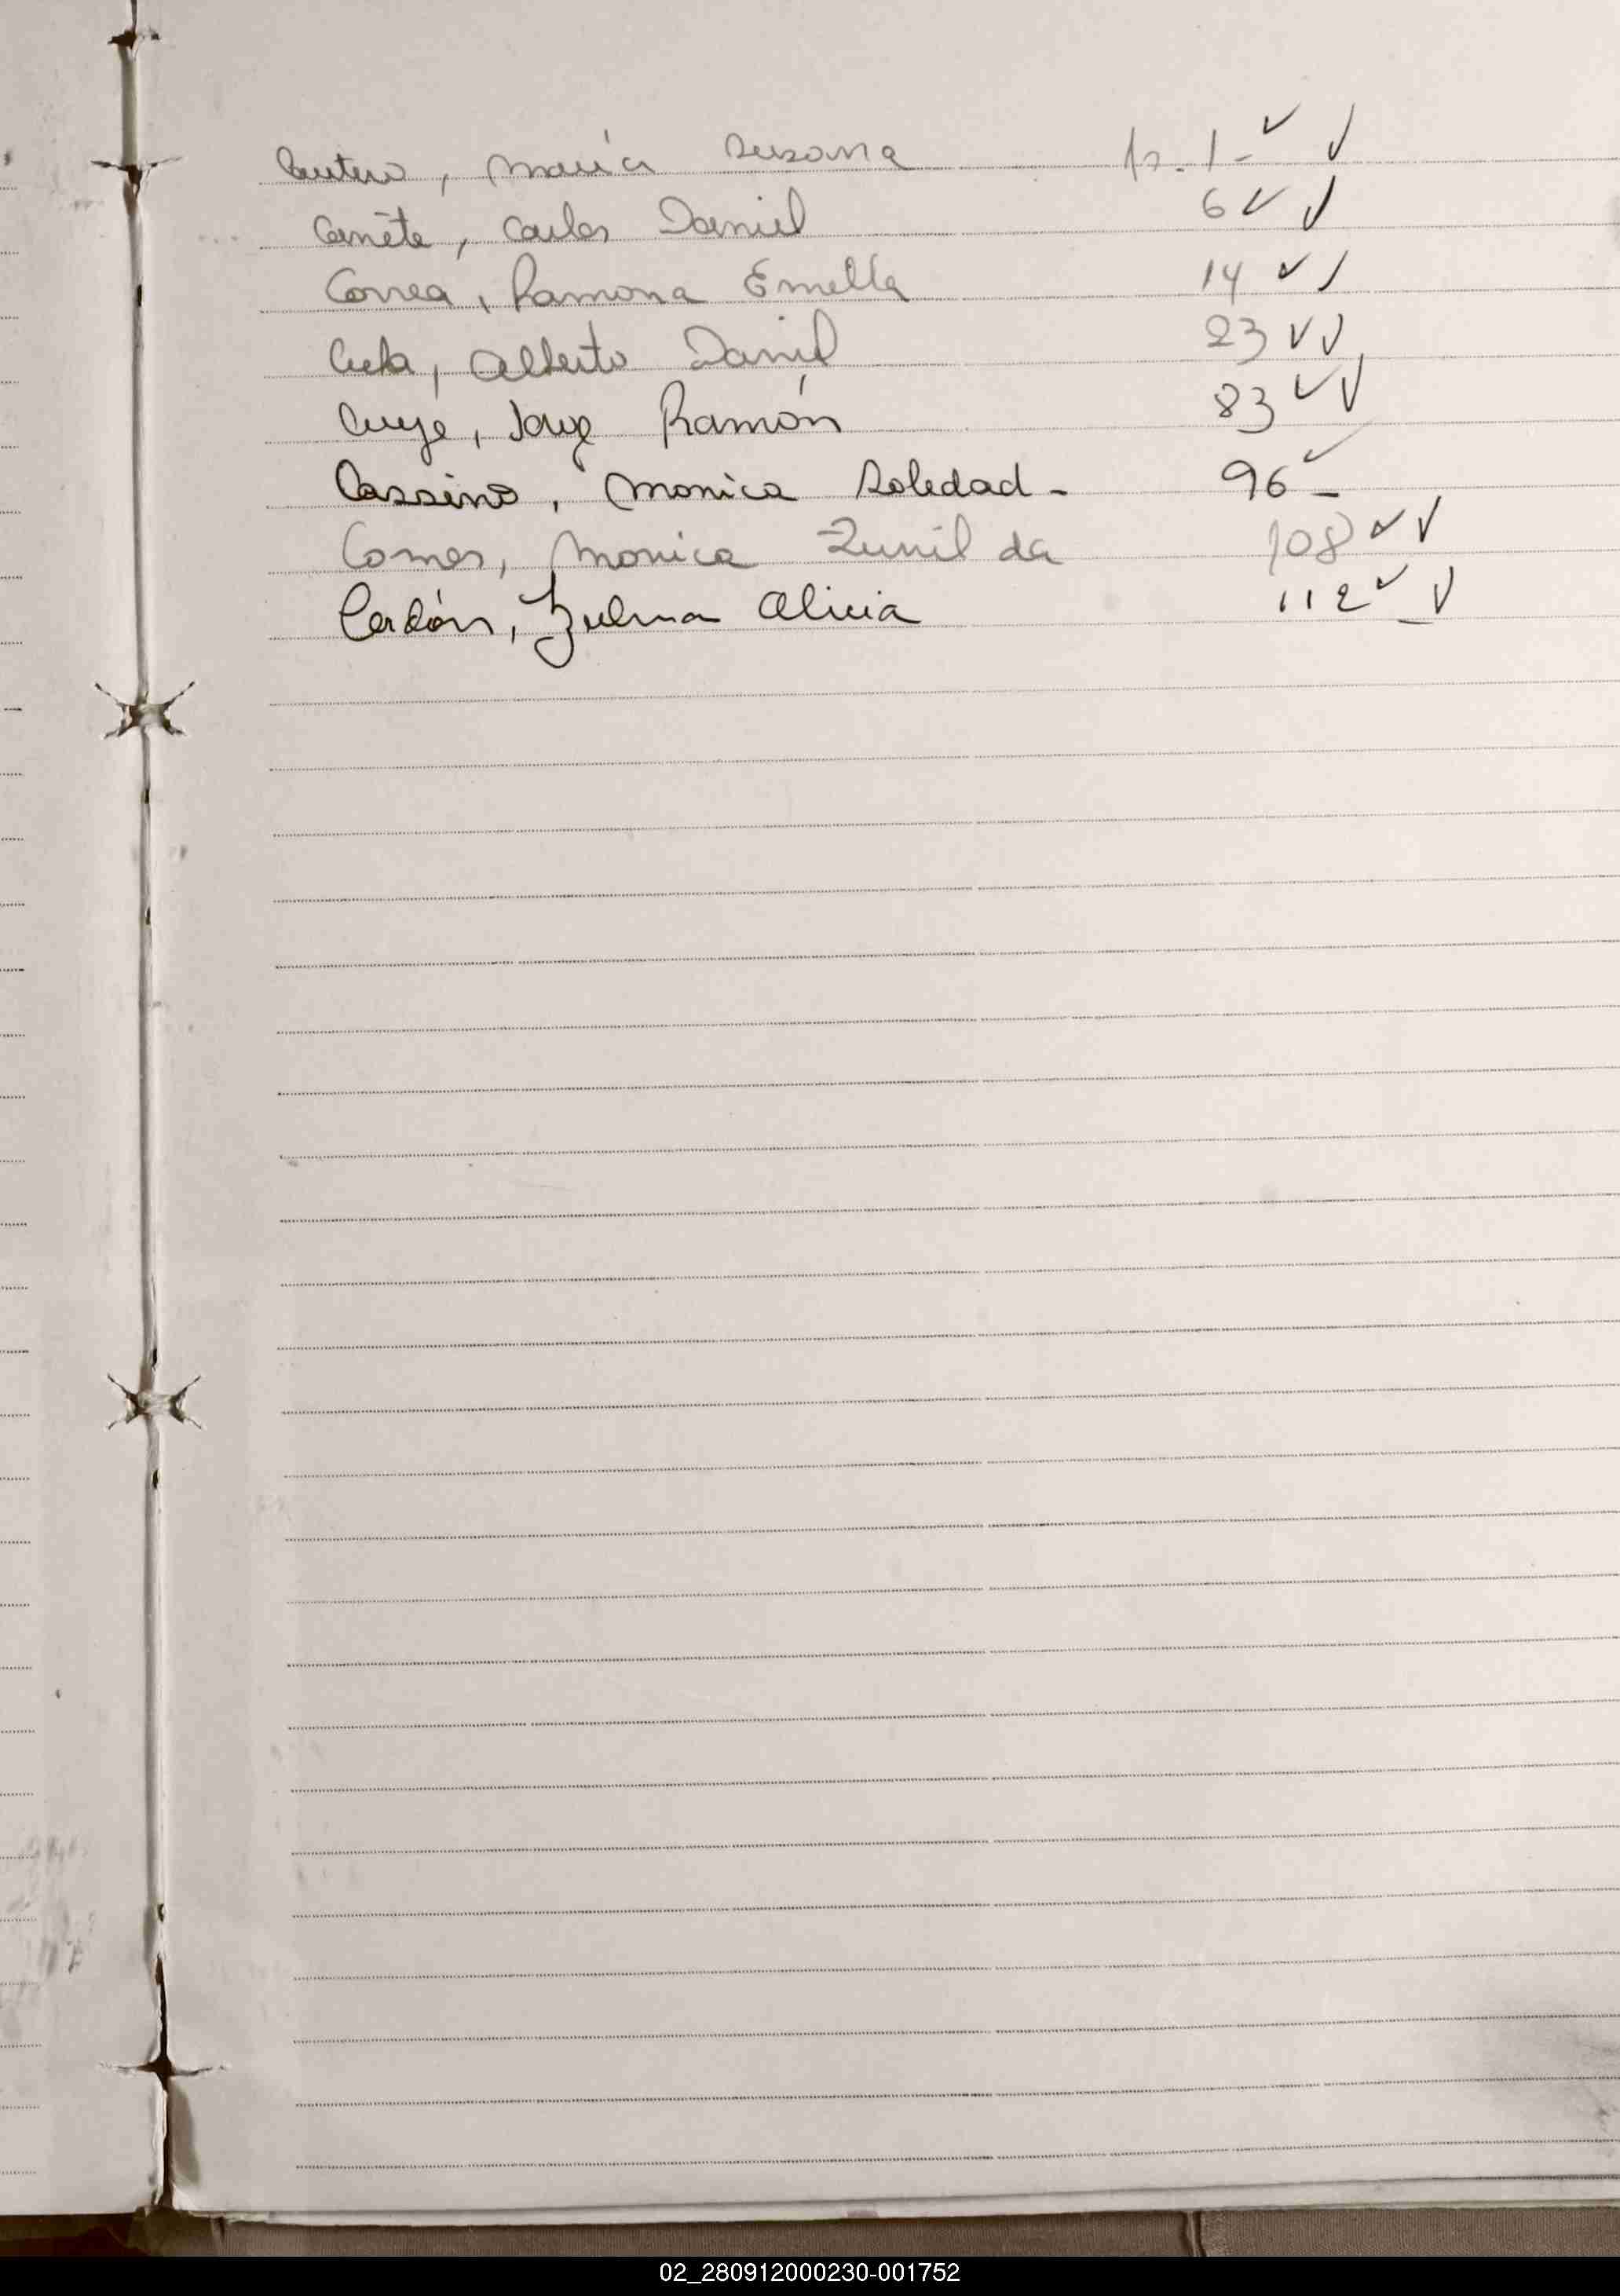 María Susana 1 -
Cañete, Carlos Daniel 6
Correa, Ramona Emella 14
Alberto Daniel 23
Jorge Ramón 83
Cassino, Monica Soledad - 96 -
Comes, Monica Zunil da 108
Cerdán, Zulma Alicia 112
02_280912000230-001752